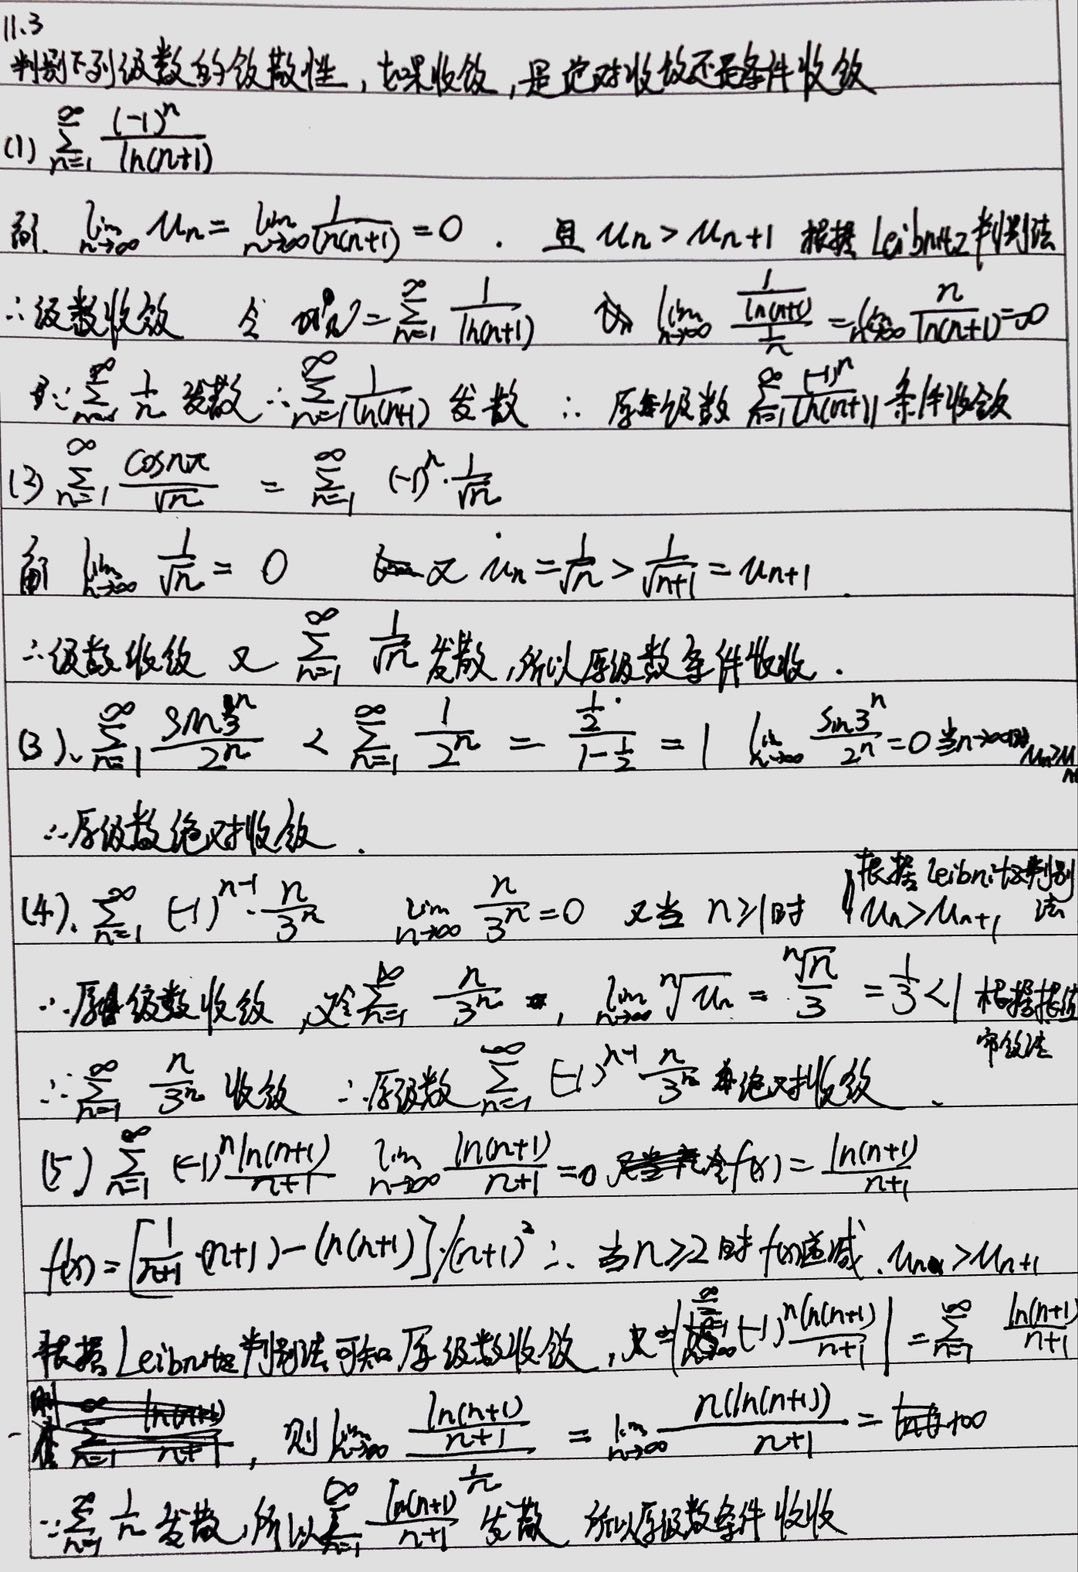 11.3
判别下列级数的敛散性，如果收敛，是绝对收敛还是条件收敛
(1) ∑_{n=1}^{∞} (-1)^n / ln(n+1)
解. lim_{n→∞} u_n = lim_{n→∞} 1/ln(n+1) = 0 . 且 u_n > u_{n+1} 根据 Leibnitz 判别法
∴级数收敛 令 = ∑_{n=1}^{∞} 1/ln(n+1) lim_{n→∞} (1/ln(n+1))/(1/n) = lim_{n→∞} n/ln(n+1) = ∞
∵ ∑_{n=1}^{∞} 1/n 发散 ∴ ∑_{n=1}^{∞} 1/ln(n+1) 发散 ∴ 原级数 ∑_{n=1}^{∞} (-1)^n/ln(n+1) 条件收敛
(2) ∑_{n=1}^{∞} cosnπ/√n = ∑_{n=1}^{∞} (-1)^n · 1/√n
解 lim_{n→∞} 1/√n = 0 又 u_n = 1/√n > 1/√(n+1) = u_{n+1} .
∴级数收敛 又 ∑_{n=1}^{∞} 1/√n 发散,所以原级数条件收敛 .
(3)、∑_{n=1}^{∞} sin3^n/2^n < ∑_{n=1}^{∞} 1/2^n = (1/2)/(1-1/2) = 1 lim_{n→∞} sin3^n/2^n = 0 当n→∞时
∴原级数绝对收敛 .
(4)、∑_{n=1}^{∞} (-1)^{n-1} · n/3^n lim_{n→∞} n/3^n = 0 又当 n≥1时 u_n > u_{n+1} 根据 Leibnitz判别法
∴原级数收敛 ,又令∑_{n=1}^{∞} n/3^n , lim_{n→∞} ⁿ√u_n = ⁿ√n/3 = 1/3 < 1 根据根值审敛法
∴ ∑_{n=1}^{∞} n/3^n 收敛 ∴原级数 ∑_{n=1}^{∞} (-1)^{n-1} n/3^n 绝对收敛 .
(5) ∑_{n=1}^{∞} (-1)^n ln(n+1)/(n+1) lim_{n→∞} ln(n+1)/(n+1) = 0 令f(x) = ln(n+1)/(n+1)
f(x) = [1/(n+1) · (n+1) - ln(n+1)]/(n+1)^2 ∴ 当n≥2时 f(x)递减 . u_n > u_{n+1}
根据 Leibnitz 判别法可知原级数收敛 , 又∵ |∑_{n=1}^{∞} (-1)^n ln(n+1)/(n+1)| = ∑_{n=1}^{∞} ln(n+1)/(n+1)
, 则 lim_{n→∞} (ln(n+1)/(n+1))/(1/n) = lim_{n→∞} n(ln(n+1))/(n+1) = +∞
∵ ∑_{n=1}^{∞} 1/n 发散,所以∑_{n=1}^{∞} ln(n+1)/(n+1) 发散 所以原级数条件收敛